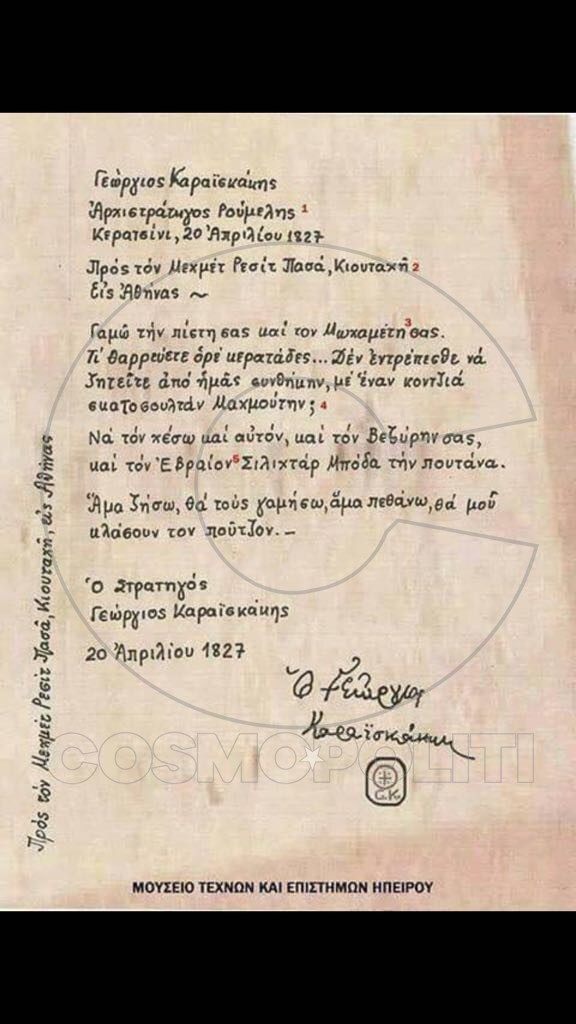 Γεώργιος Καραϊσκάκης
Ἀρχιστράτηγος Ρούμελης 1
Κερατσίνι, 20 Ἀπριλίου 1827
Πρός τόν Μεχμέτ Ρεσίτ Πασά, Κιουταχῆ 2
Εἰς Ἀθήνας ~
Γαμῶ τήν πίστη σας καί τον Μωχαμέτη 3 σας.
Τί θαρρεύετε ὀρέ κερατάδες... Δέν ἐντρέπεσθε νά
ζητεῖτε ἀπό ἡμᾶς συνθήκην, μέ ἕναν κοντζιά
σκατοσουλτάν Μαχμούτην; 4
Νά τόν χέσω καί αὐτόν, καί τόν Βεζύρην σας,
καί τόν Ἑβραίον 5 Σιλιχτάρ Μπόδα τήν πουτάνα.
Ἅμα ζήσω, θά τούς γαμήσω, ἅμα πεθάνω, θά μοῦ
κλάσουν τον ποῦτζον. –
Ὁ Στρατηγός
Γεώργιος Καραϊσκάκης
20 Ἀπριλίου 1827
Ὁ Γεώργιος
Καραϊσκάκης
G.K.
Πρός τόν Μεχμέτ Ρεσίτ Πασᾶ, Κιουταχῆ, εἰς Ἀθήνας
COSMOPOLITI
ΜΟΥΣΕΙΟ ΤΕΧΝΩΝ ΚΑΙ ΕΠΙΣΤΗΜΩΝ ΗΠΕΙΡΟΥ